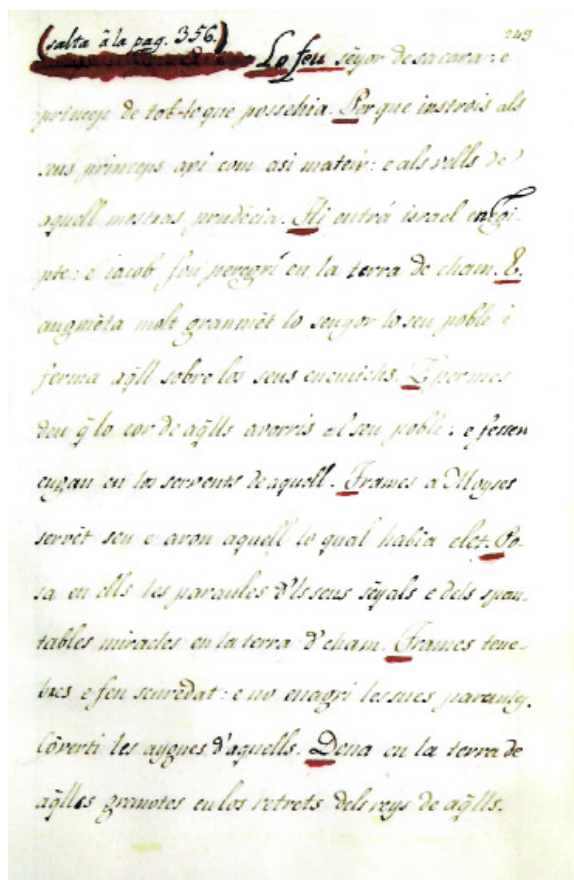 (salta â la pag. 356.) 249
Lo feu señor de sa casa: e
princep de tot lo que possehia. Per que instrois als
seus princeps axi com asi mateix: e als vells de
aquell mostras prudẽcia. Hi entrá israel en Egi-
pte: e iacob fou peregrí en la terra de cham. E
augmẽta molt granmẽt lo senyor lo seu poble e
ferma aq̃ll sobre los seus enemichs. E permes
deu q̃ lo cor de aq̃lls avorris al seu poble: e fessen
engan en los servents de aquell. Trames a Moyses
servẽt seu e aron aquell lo qual habia elet. Po-
sa en ells les paraules d'ls seus señals e dels span-
tables miracles en la terra d'cham. Trames tene-
bres e feu scuredat: e no enagri les sues paraules.
Cõverti les aygues d'aquells. Dona en la terra de
aq̃lles granotes en los retrets dels reys de aq̃lls.